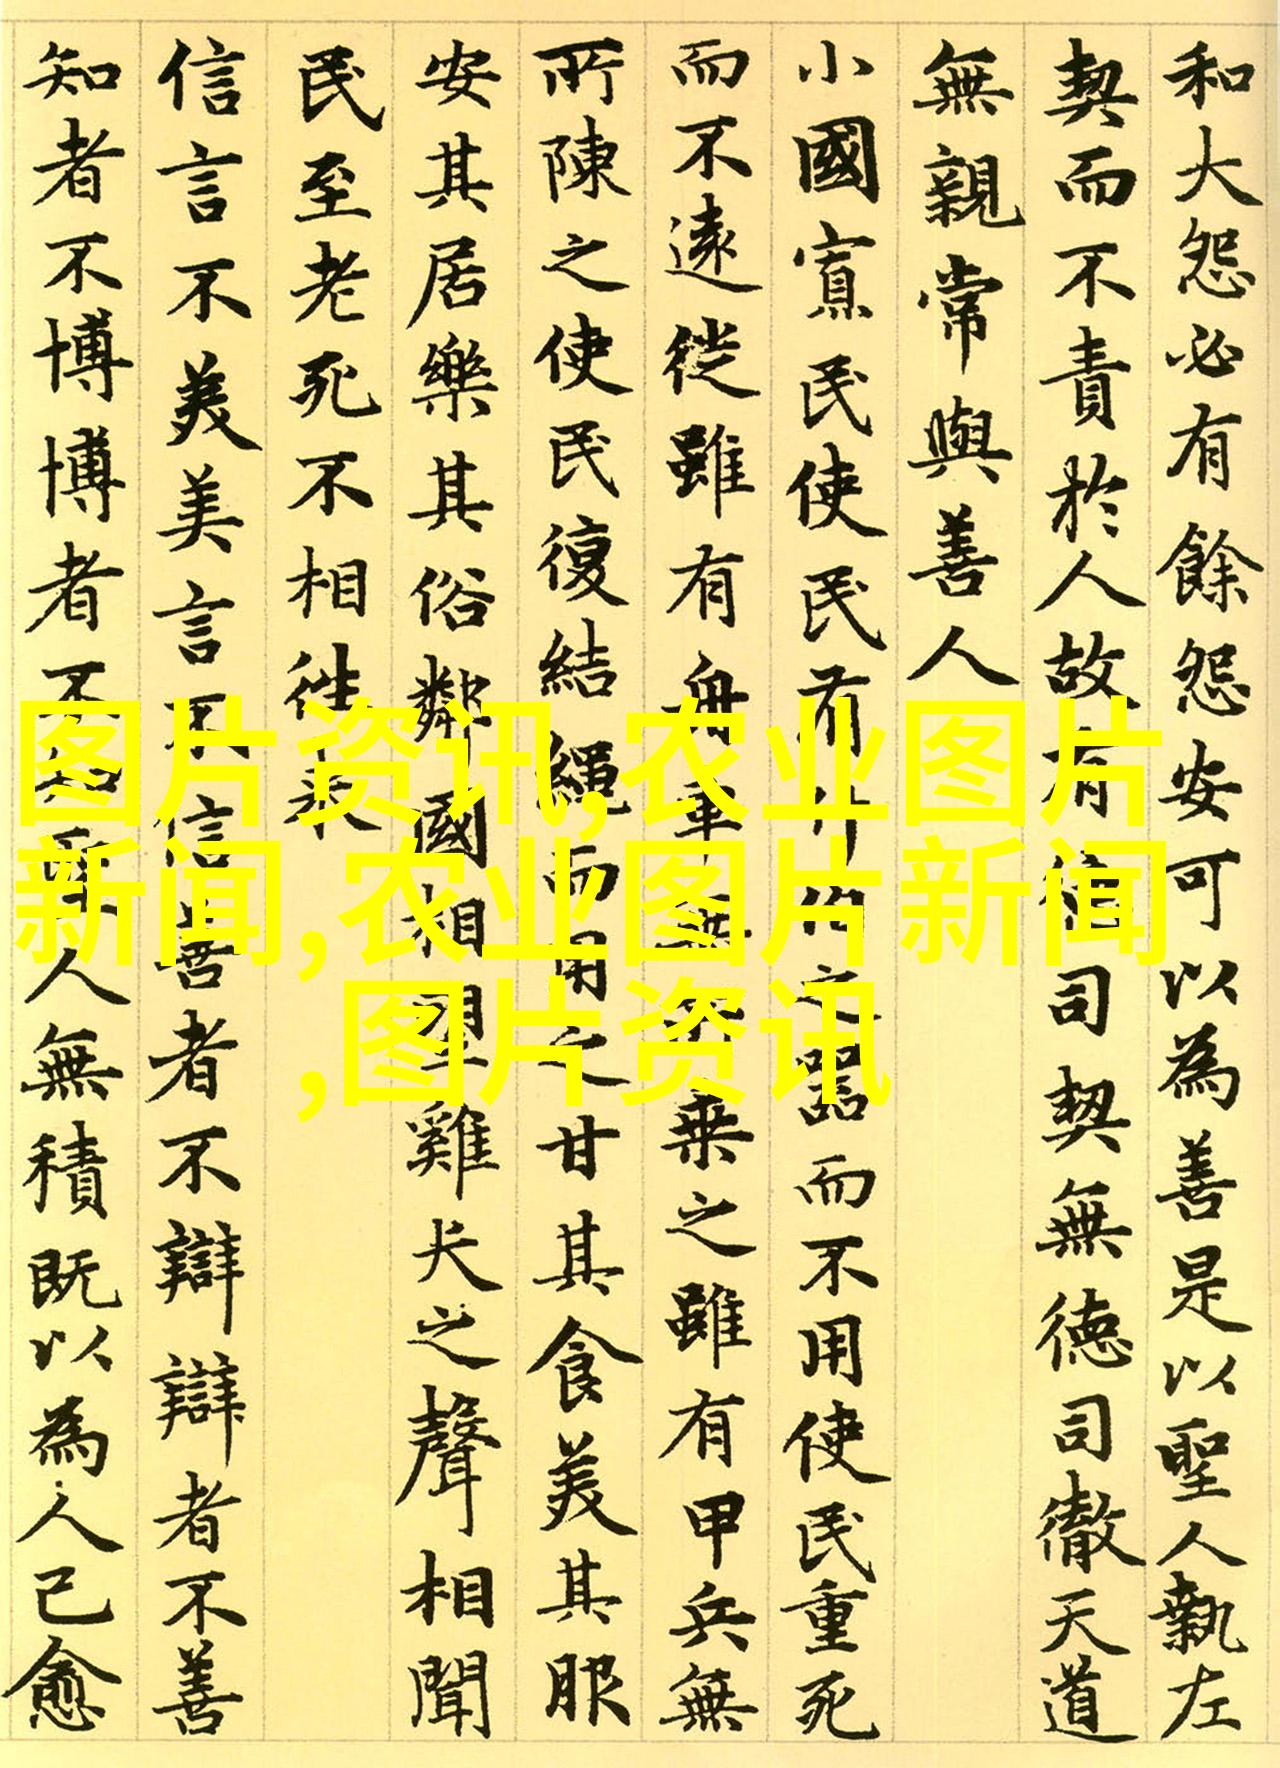 和大怨必有餘怨安可以為善是以聖人執左
契而不責於人故有德司契無德司徹天道
無親常與善人
小國寡民使民有什伯之器而不用使民重死
而不遠徙雖有舟車無所乘之雖有甲兵無
所陳之使民復結繩而用之甘其食美其服
安其居樂其俗鄰國相望雞犬之聲相聞
民至老死不相往来
信言不美美言不信善者不辯辯者不善
知者不博博者不知聖人無積既以為人己愈
图片资讯,农业图片
新闻,农业图片新闻
,图片资讯